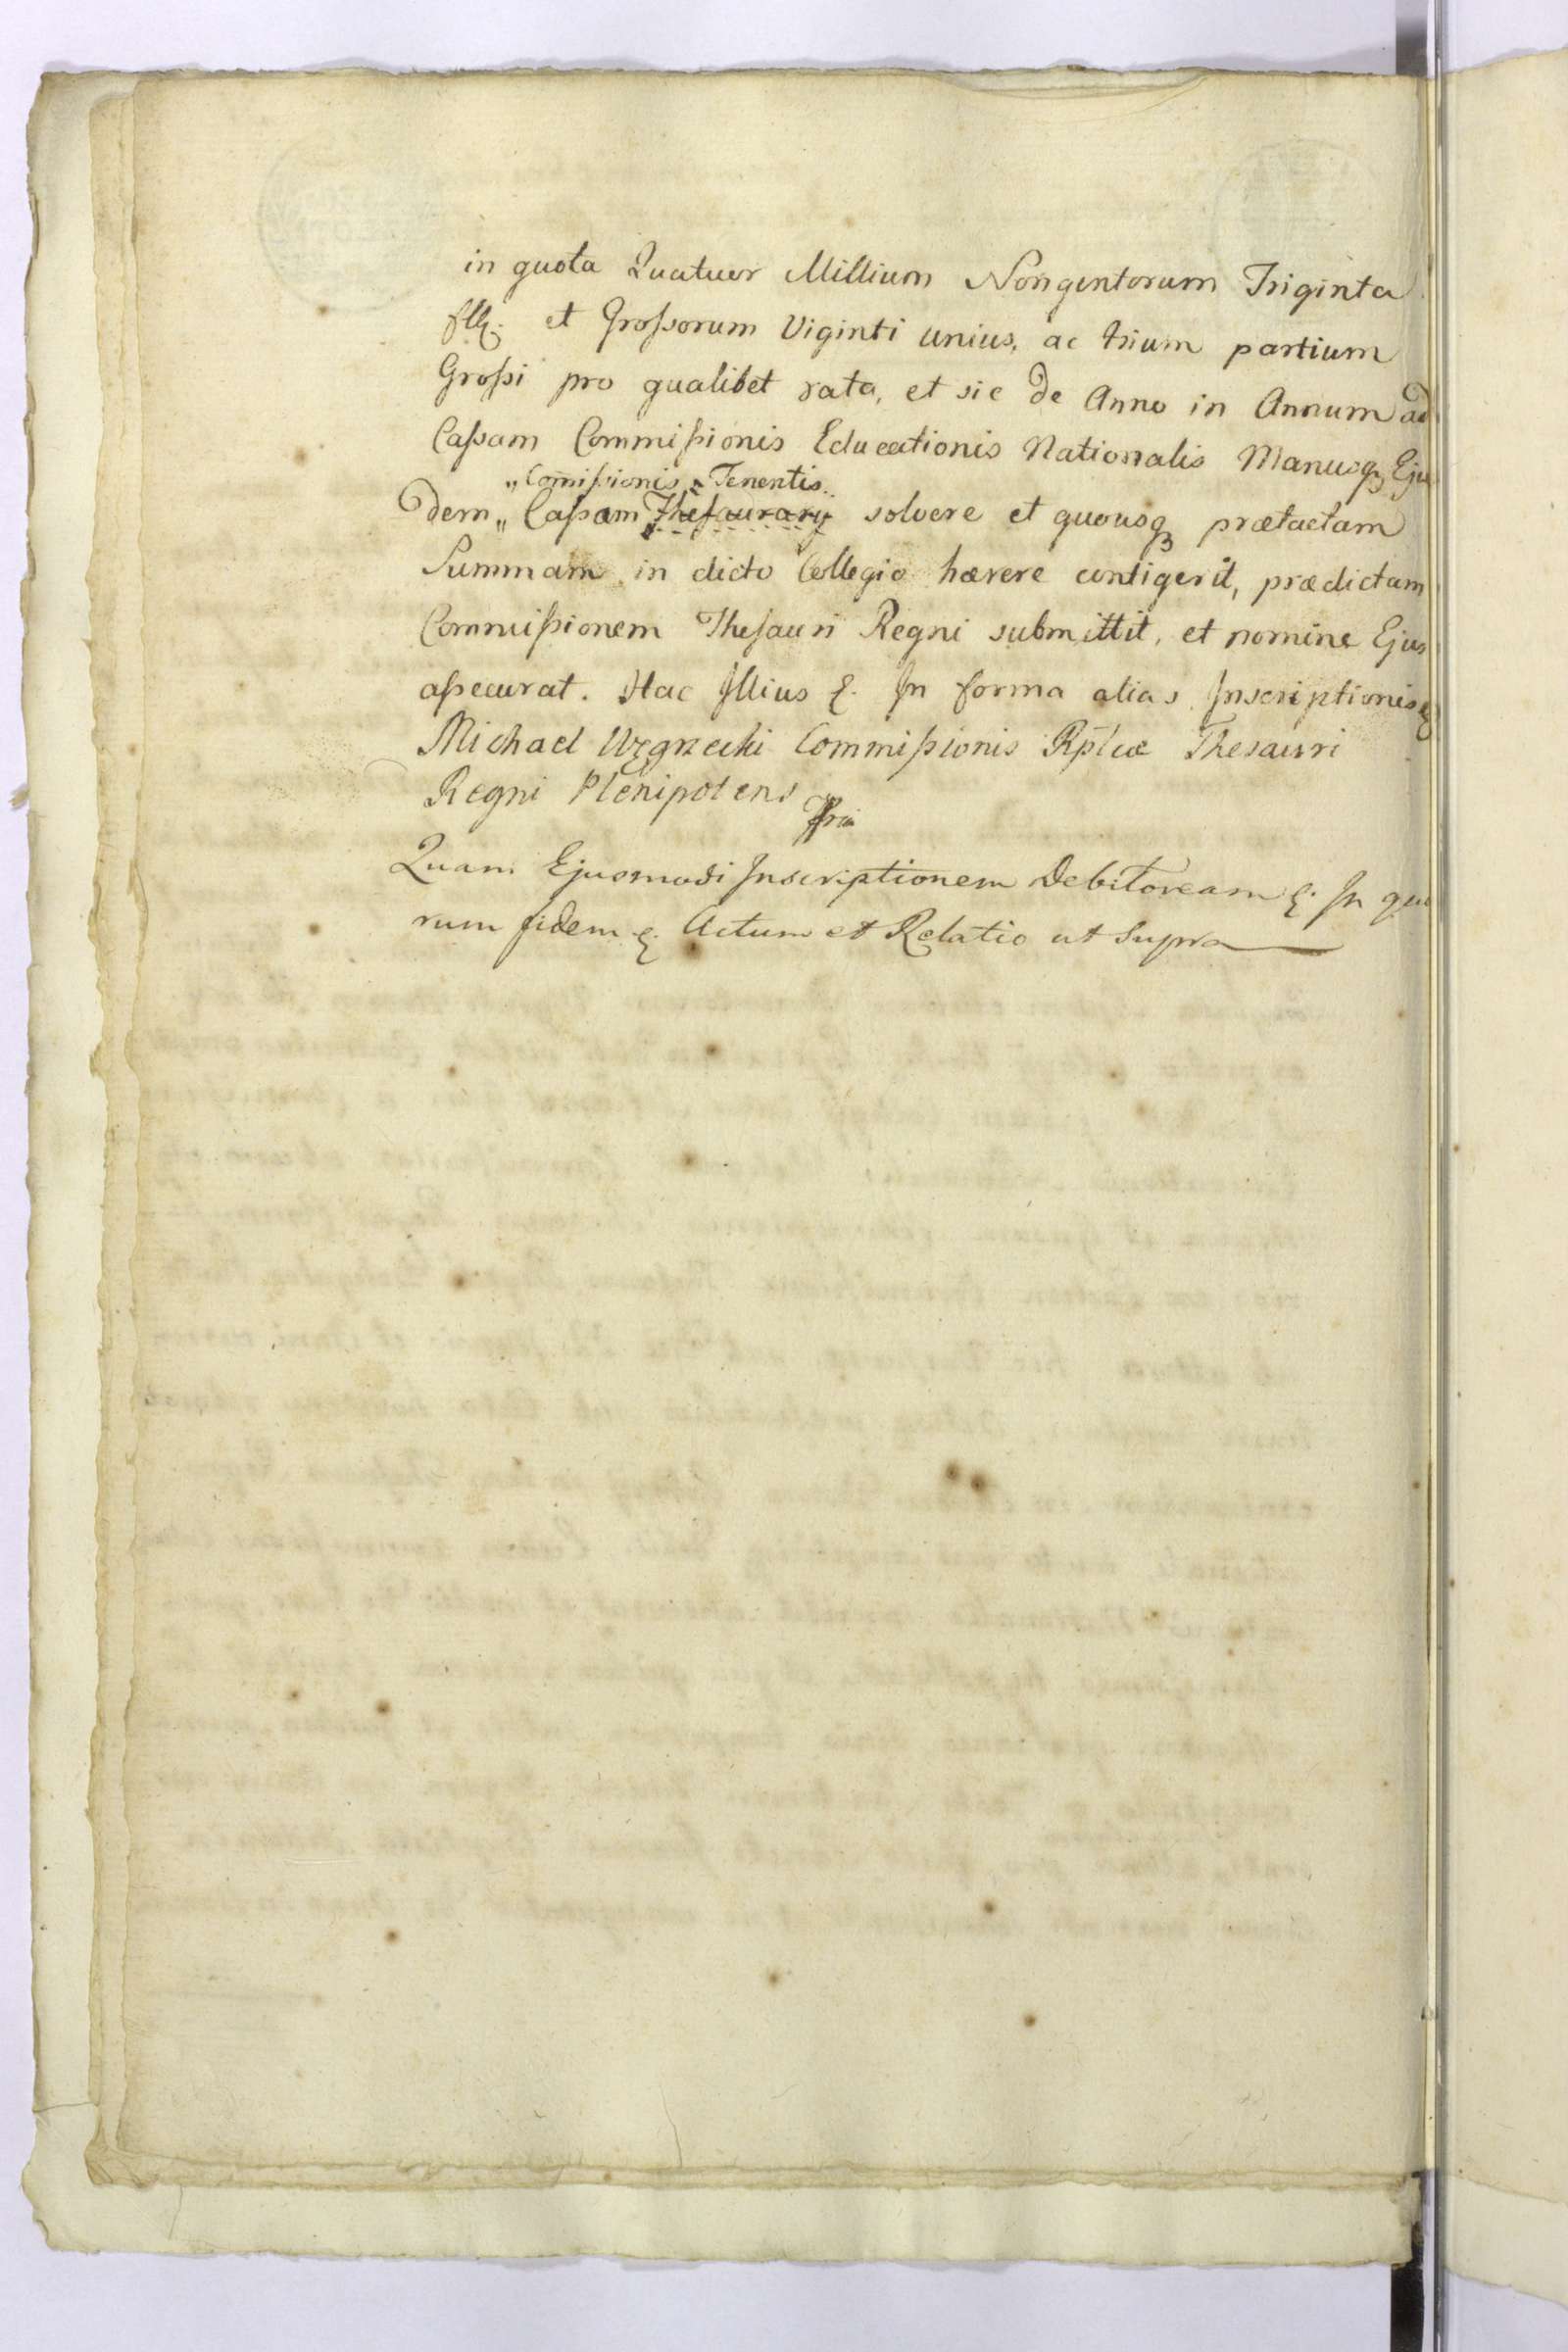 in quota Quatuor Millium Nongentorum Triginta
flt. et Grossorum Viginti unius, ac trium partium
Grossi pro qualibet rata, et sic de Anno in Annum ad
Cassam Commissionis Educationis Nationalis Manusq3 Eju
"Comissionis Tenentis
dem" Cassam Thesaurarij solvere et quousq3 prætactam
Summam in dicto Collegio hærere contigerit, prædictam
Commissionem Thesauri Regni submittit, et nomine Ejus
assecurat. Hac Illius &. In forma alias Inscriptionis &
Michael Commissionis Rptcæ Thesauri
Regni Plenipotens
Quam Ejusmodi Inscriptionem Debitoream &. In quo
rum fidem &. Actum et Relatio ut Supra